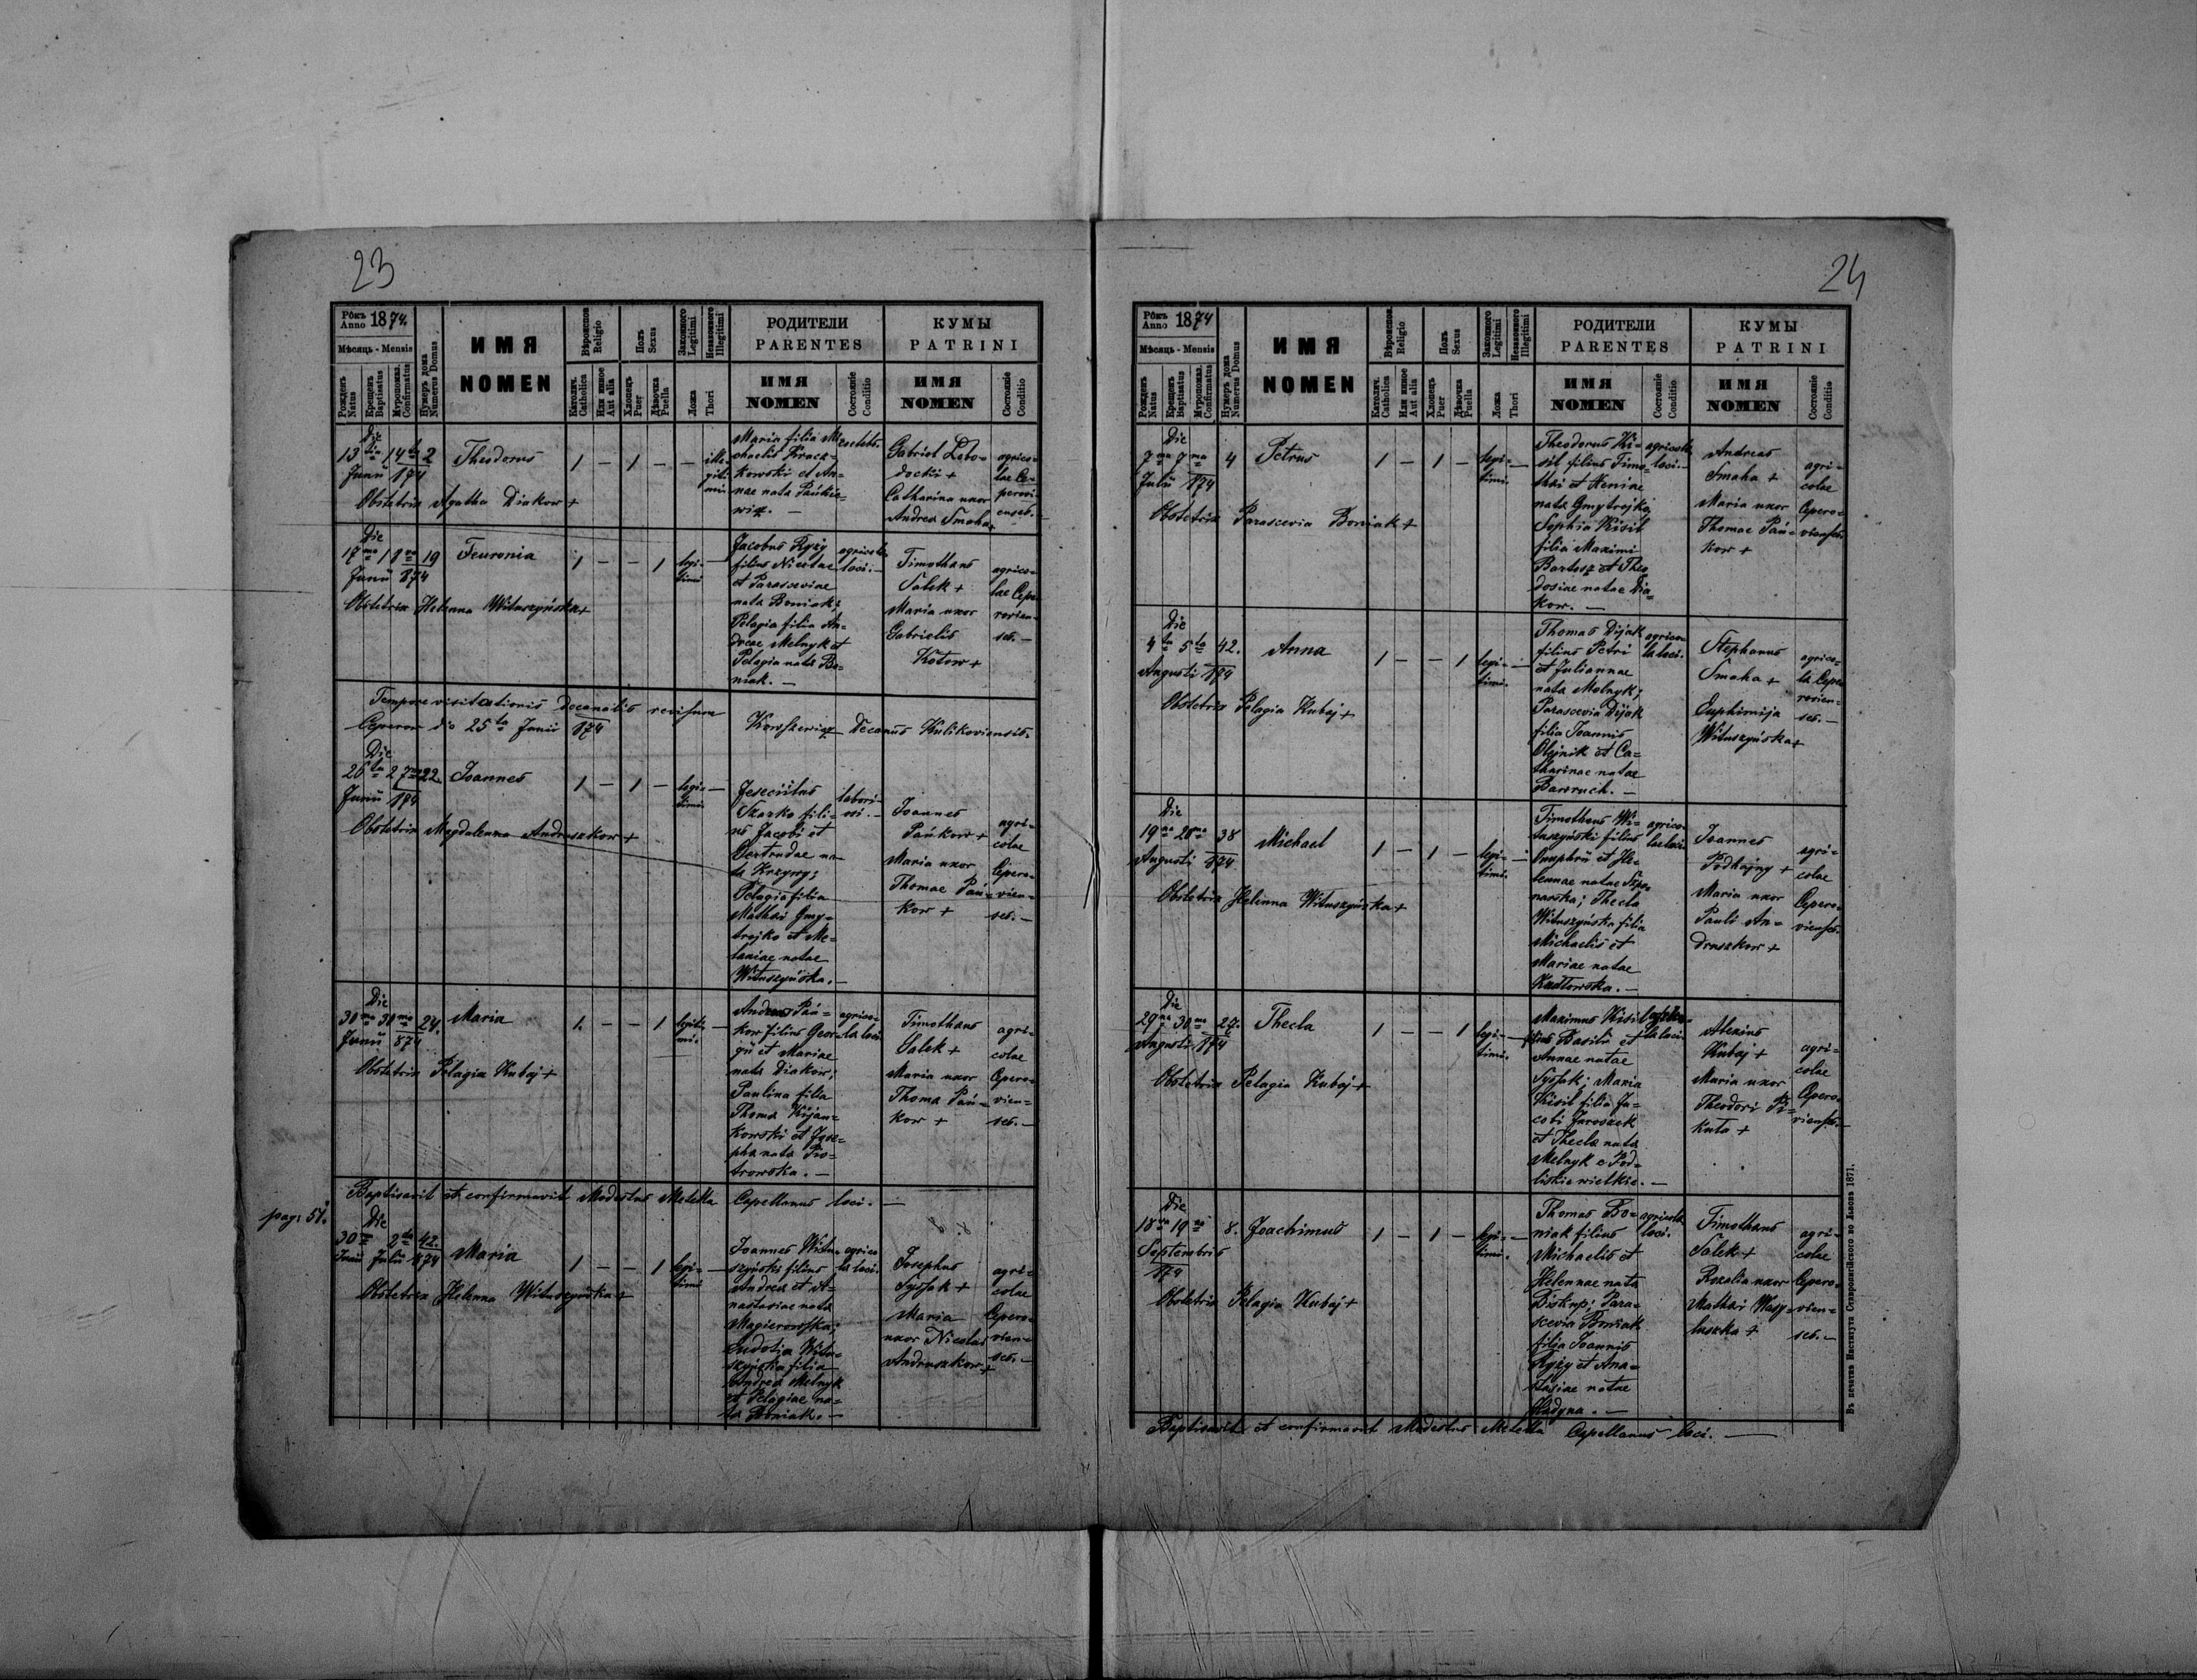 23
Рôкъ Anno 1874.
Мѣсяць - Mensis
Рожденъ Natus
Крещенъ Baptisatus
Мѵропомаз. Confirmatus
Нумеръ дома Numerus Domus
ИМЯ
NOMEN
Вѣроиспов Religio
Католич. Catholica
Или инное Aut alia
Полъ Sexus
Хлопецъ Puer
Дѣвочка Puella
Законного Legitimi
Незаконного Illegitimi
Ложа Thori
РОДИТЕЛИ
PARENTES
ИМЯ
NOMEN
Состоянiе Conditio
КУМЫ
PATRINI
ИМЯ
NOMEN
Состоянiе Conditio
Die
13 tia 14 ta 2
Junii 874
Theodorus
1 — 1 — — ille-
giti-
mi
Maria filia Mi-
chaelis Kracz-
kowski et An-
nae nata Pańkie-
wicz. —
Gabriel Lebo-
docki +
Catharina uxor
Andrea Smaha +
agrico-
lae Ce-
perovi-
enses. —
Obstetrix Agatha Diakow +
Die
17 ma 18 va 19
Junii 874
Feuronia
1 — — 1 legi- —
timi
Jacobus Ryży
filius Nicolae
et Parasceviae
nata Boniak;
Pelagia filia An-
dreae Melnyk et
Pelagia nata Bo-
niak. —
agricola
loci. —
Timotheus
Salek +
Maria uxor
Gabrielis
Kotow +
agrico-
lae Cepe-
rovien-
ses. —
Obstetrix Helenna Wituszyńska +
Tempore visitationis decanalis revisum
Ceperow die 25 ta Junii 874
Kowszewicz Decanus Kulikoviensis.
Die
26 ta 27 ma 22.
Junii 874
Joannes
1 — 1 — legi- —
timi.
Szarko fili-
us Jacobi et
Gertrudae na-
ta Krzywy;
Pelagia filia
Mathei Gmy-
trejko et Me-
laniae natae
Wituszyńska. —
Joannes
Pańkow +
Maria uxor
Thomae Pań-
kow +
agri-
colae
Cepero-
vien-
ses. —
Obstetrix Magdalenna Andruszkow +
Die
30 ma 30 ma 24.
Junii 874
Maria
1. — — 1 legiti- —
mi.
Andreas Pań-
kow filius Geor-
gii et Mariae
nata Diakow;
Paulina filia
Thoma Kijan-
kowski et Jose-
pha nata Pio-
trowska. —
agrico-
la loci
Timotheus
Salek +
Maria uxor
Thoma Pań-
kow +
agri-
colae
Cepero-
vien-
ses. —
Obstetrix Pelagia Kubaj +
Baptisavit et confirmavit Modestus Metella Capellanus loci. —
pag: 51.
Die
30 2 da 42.
Junii Julii 874
Maria
1 — — 1 legi- —
timi
Joannes Witu-
szyński filius
Andrea et A-
nastasiae nata
Magierowska;
Eudotia Witu-
szyńska filia
Andrea Melnyk
et Pelagiae na-
ta Boniak. —
agrico
la loci.
Josephus
Syssak +
Maria
uxor Nicolai
Andruszkow +
agri-
colae
Cepero-
vien-
ses. —
Obstetrix Helenna Wituszyńska +
24
Рôкъ Anno 1874
Мѣсяць - Mensis
Рожденъ Natus
Крещенъ Baptisatus
Мѵропомаз. Confirmatus
Нумеръ дома Numerus Domus
ИМЯ
NOMEN
Вѣроиспов Religio
Католич. Catholica
Или инное Aut alia
Полъ Sexus
Хлопецъ Puer
Дѣвочка Puella
Законного Legitimi
Незаконного Illegitimi
Ложа Thori
РОДИТЕЛИ
PARENTES
ИМЯ
NOMEN
Состоянiе Conditio
КУМЫ
PATRINI
ИМЯ
NOMEN
Состоянiе Conditio
Die
7 ma 7 ma 4
Julii 874
Petrus
1 — 1 — legi- —
timi.
Theodorus Ki-
sil filius Timo-
thei et Xeniae
nata Gmytrejko;
Sophia Kisil
filia Maximi
Bartosz et Theo
dosiae natae Dia-
kow. —
agricola
loci. —
Andreas
Smaha +
Maria uxor
Thomae Pań-
kow +
agri-
colae
Cepero-
vienses.
Obstetrix Parascevia Boniak +
Die
4 ta 5 ta 42.
Augusti 874
Anna
1 — — 1 legi- —
timi.
Thomas Dijak
filius Petri
et Juliannae
nata Melnyk;
Parascevia Dijak
filia Joannis
Olejnik et Ca-
tharinae natae
Bawruch. —
agrico-
la loci.
Stephanus
Smaha +
Euphimija
Wituszyńska +
agrico-
la Cepe
rovien-
ses. —
Obstetrix Pelagia Kubaj +
Die
19 na 20 ma 38
Augusti 874
Michael
1 — 1 — legi- —
timi.
Timotheus Wi-
tuszyński filius
Onuphrii et He-
lennae natae Szpo-
narska; Thecla
Wituszyńska filia
Michaelis et
Mariae natae
Kudłowska. —
agrico-
lae loci
Joannes
Podhajny +
Maria uxor
Pauli An-
druszkow +
agri-
colae
Cepero-
vienses.
Obstetrix Helenna Wituszyńska +
Die
29 na 30 ma 27.
Augusti 874
Thecla
1 — — 1 legi- —
timi.
Maximus Kisil
filius Basilii et
Annae natae
Syssak; Maria
Kisil filia Ja-
cobi Jaroszek
et Thecla nata
Melnyk e Pod-
liski wielkie. —
la loci.
Alexius
Kubaj +
Maria uxor
Theodori Pi-
kuta +
agri-
colae
Cepero-
vienses. —
Obstetrix Pelagia Kubaj +
Die
18 va 19 na 8.
Septembris
874
Joachimus
1 — 1 — legi- —
timi.
Thomas Bo-
niak filius
Michaelis et
Helennae nata
Biskup; Para-
scevia Boniak
filia Joannis
Ryży et Ana-
stasiae natae
Hadyna. —
agricola
loci.
Timotheus
Salek +
Rozalia uxor
Mathei Wasy-
luszka +
agri-
colae
Cepero-
vien-
ses. —
Obstetrix Pelagia Kubaj +
Baptisavit et confirmavit Modestus Metella Capellanus loci. —
Въ печатни Института Ставропигiйского во Львовѣ 1871.